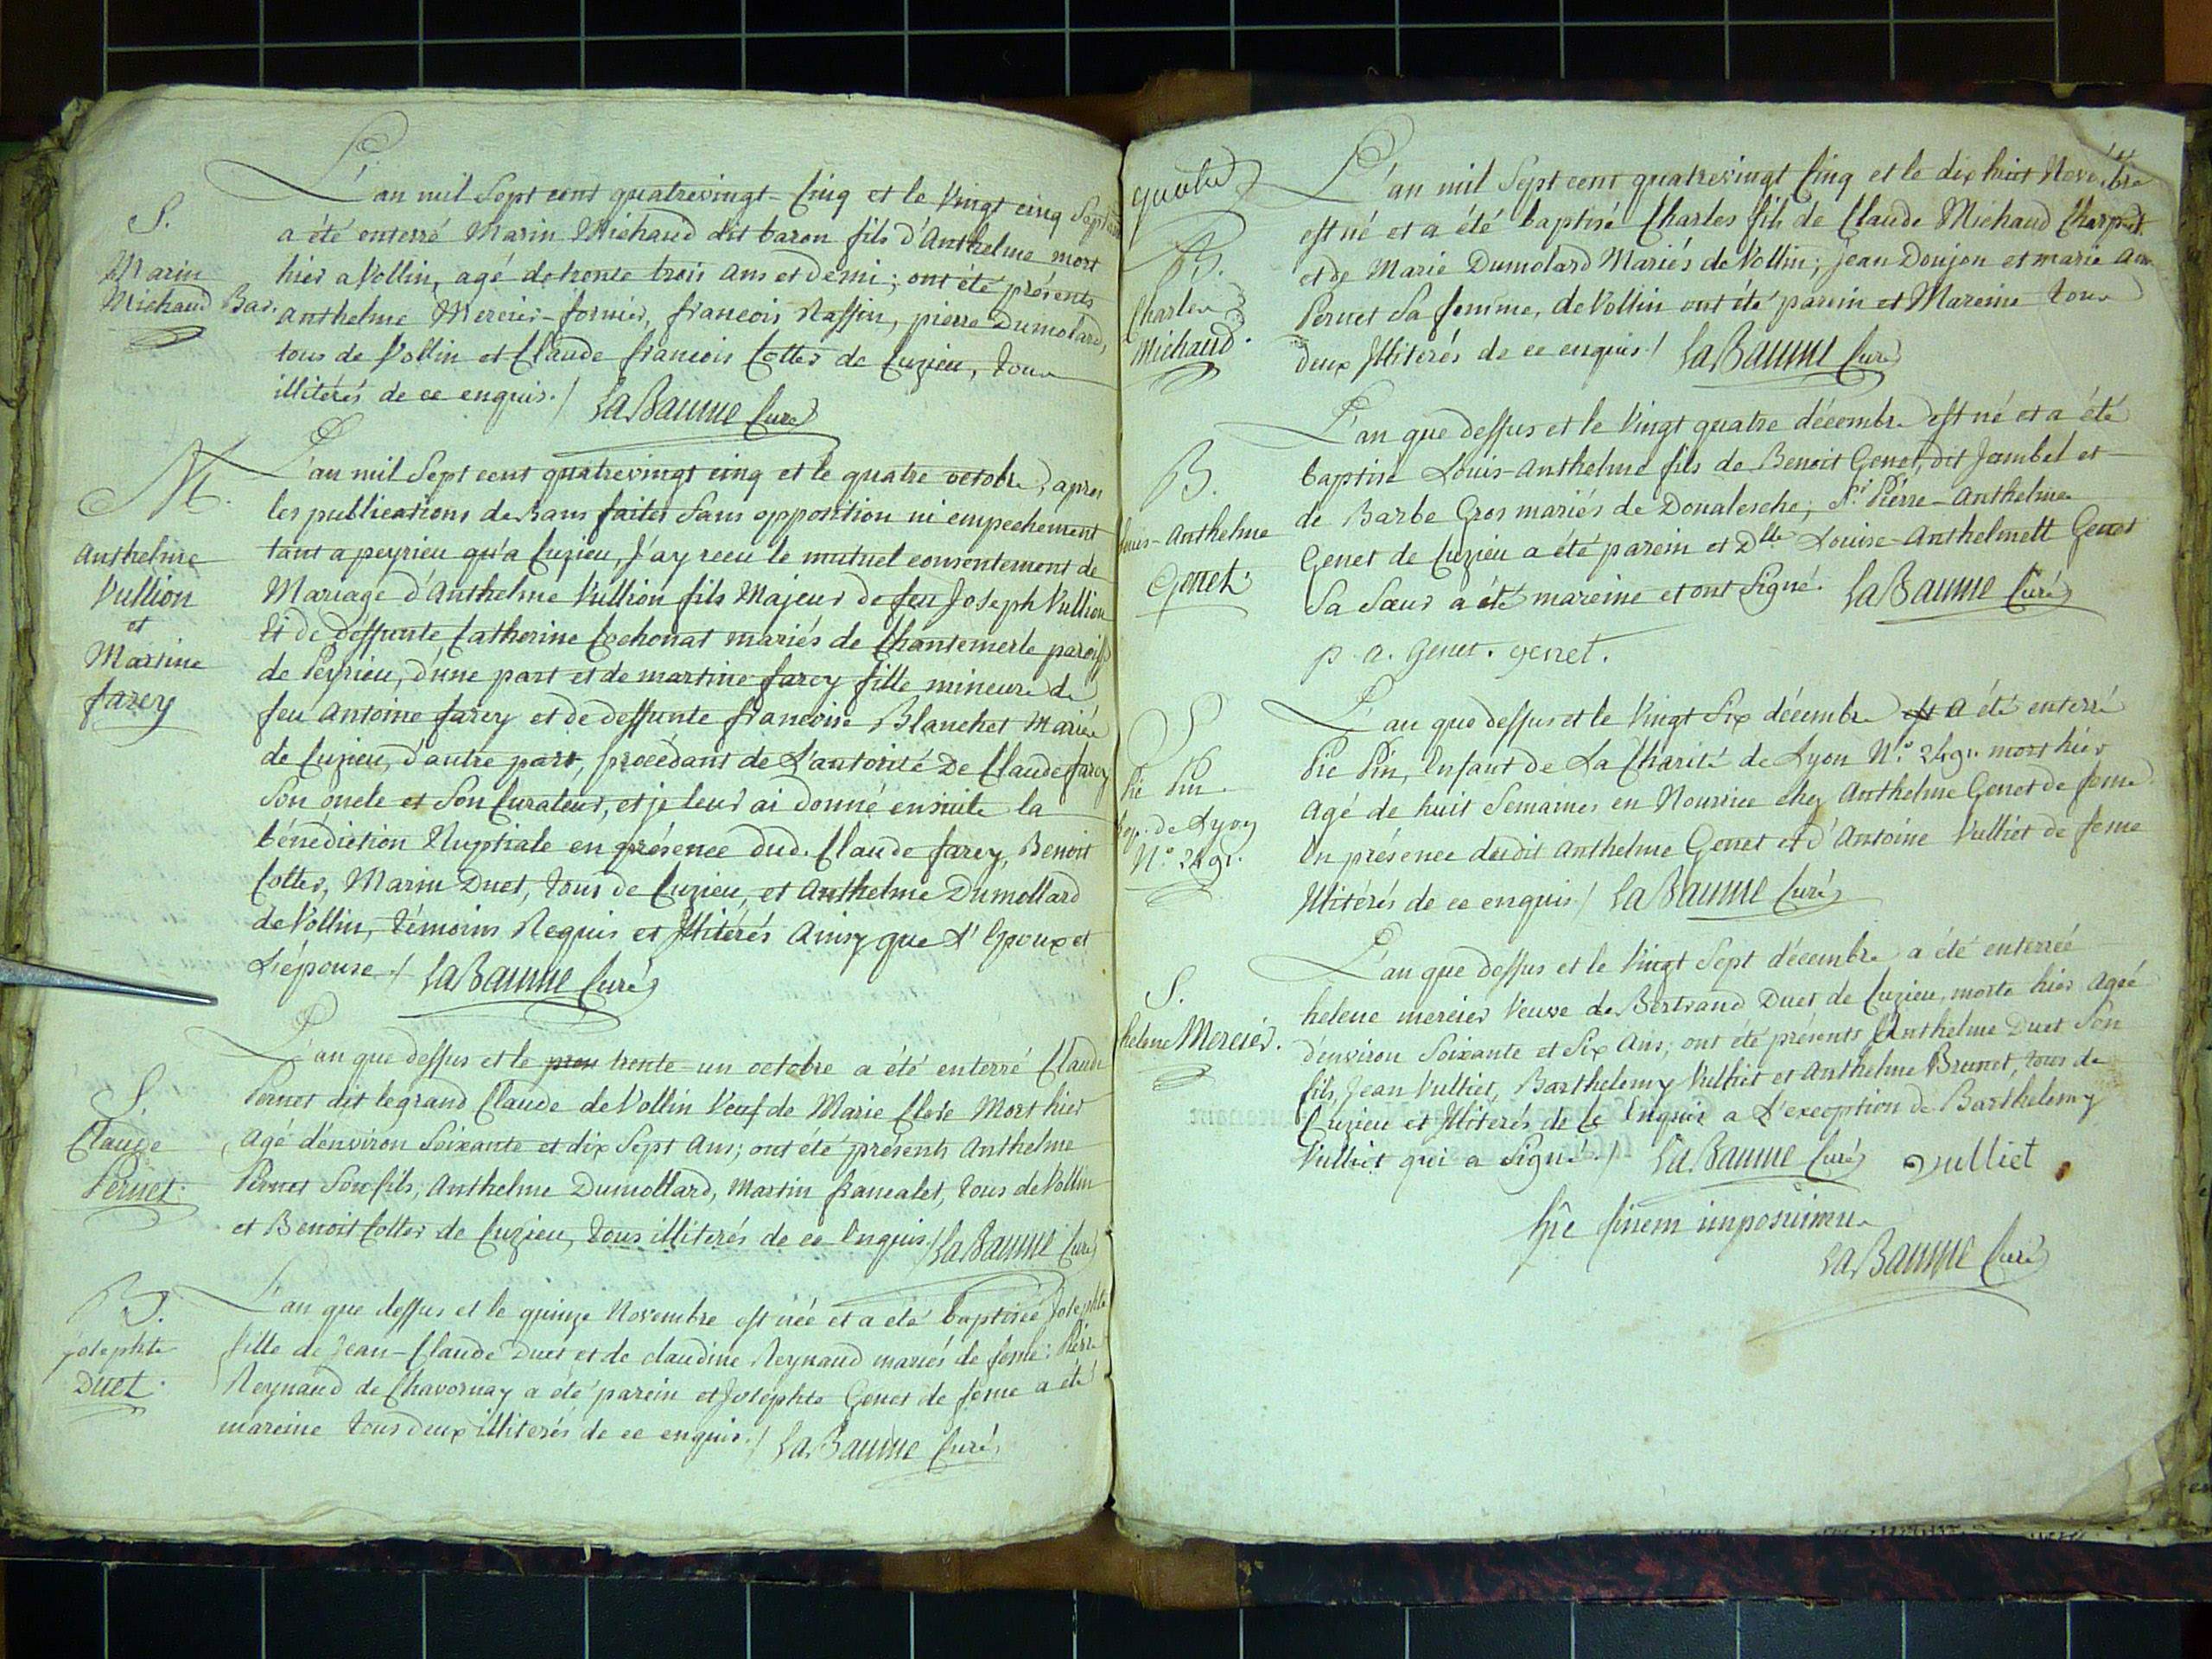 L'an mil Sept cent quatrevingt-Cinq et le Vingt cinq Septem
a été enterré Marin Michaud dit baron fils d'Anthelme mort
S.
Marin
Michaud Bar.
hier a Vollin, agé de trente trois ans et demi; ont été présents
anthelme Mercier-fornier, francois Raffin, pierre Dumolard,
tous de Vollin et Claude francois Cotter de Cuzieu, tous
illitérés de ce enquis./ LaBaume Curé
M.
Anthelme
Vullion
et
Martine
farcy
L'an mil Sept cent quatrevingt cinq et le quatre octobre, apres
les publications de Bans faites Sans opposition ni empechement
tant a peyrieu qu'a Cuzieu, J'ay receu le mutuel consentement de
Mariage d'Anthelme Vullion fils Majeur de feu Joseph Vullion
Et de deffunte Catherine Cochonat mariés de Chantemerle paroiss
de Peyrieu, d'une part et de martine farcy fille mineure de
feu Antoine farcy et de deffunte francoise Blanchet Mariés
de Cuzieu, d'autre part, procédant de L'autorité De Claude farcy
Son oncle et Son Curateur, et je leur ai donné ensuite la
bénédiction Nuptiale en présence dud. Claude farcy, Benoit
Cotter, Marin Duet, tous de Cuzieu, et Anthelme Dumollard
de Vollin, témoins Requis et Illitérés Ainsy que L'Epoux et
L'épouse./ LaBaume Curé
S.
Claude
Pernet
L'an que dessus et le prem trente-un octobre a été enterré Claude
Pernet dit legrand Claude de Vollin Veuf de Marie Clere Mort hier
Agé d'environ Soixante et dix Sept Ans; ont été présents Anthelme
Pernet Son fils, Anthelme Dumollard, Martin francalet, tous de Vollin
et Benoit Cotter de Cuzieu, tous illiterés de ce Enquis/ LaBaume Curé
B.
Josephte
Duet.
L'an que dessus et le quinze Novembre est née et a été baptisée Josephte
fille de Jean-Claude Duet et de claudine Reynaud mariés de feme: Pierre
Reynaud de Chavornay a été parein et Josephte Genet de feme a été
mareine tous deux illiterés de ce enquis./ LaBaume Curé
quatre
B.
Charles
Michaud.
L'an mil Sept cent quatrevingt Cinq et le dix huit Novembre
est né et a été baptisé Charles fils de Claude Michaud Charpnt
et de Marie Dumolard Mariés de Vollin; Jean Doujon et marie Ann
Pernet Sa femme, de Vollin ont été parein et Mareine tous
deux Illiterés de ce enquis./ LaBaume Curé
B.
Louis-Anthelme
Genet.
L'an que dessus et le Vingt quatre décembre est né et a été
baptisé Louis-Anthelme fils de Benoit Genet, dit Jambel et
de Barbe Gros mariés de Donalesche; Sr. Pierre-Anthelme
Genet de Cuzieu a été parein et Dlle Louise-Anthelmett Genet
Sa Sœur a été mareine et ont Signé. LaBaume Curé
p. a. genet. genet.
S
Pie Pin.
hop. de Lyon
N.° 2491.
L'an que dessus et le Vingt Six décembre est a été enterré
Pie Pin, Enfant de La Charité de Lyon N.° 2491. mort hier
Agé de huit Semaines en Nourrice chez Anthelme Genet de feme
En présence dudit Anthelme Genet et d'Antoine Vulliet de feme
Illitérés de ce enquis/ LaBaume Curé
S.
helene Mercier.
L'an que dessus et le Vingt Sept décembre a été enterrée
helene mercier Veuve de Bertrand Duet de Cuzieu, morte hier Agée
d'environ Soixante et Six Ans; ont été présents Anthelme Duet Son
fils, Jean Vulliet, Barthelemy Vulliet et Anthelme Brunet, tous de
Cuzieu et Illiterés de Ce Enquis a L'exception de Barthelemy
Vulliet qui a Signé./ LaBaume Curé vulliet
hîc finem imposuimus
LaBaume Curé